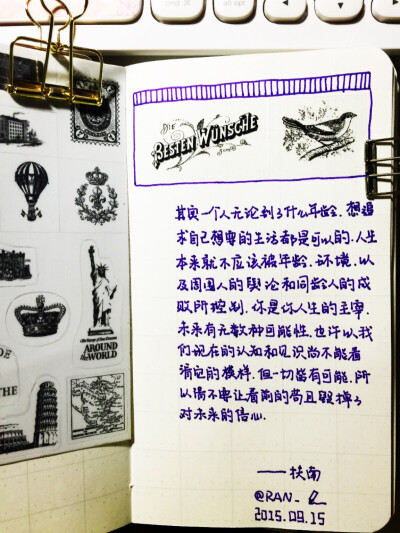 ⌘
alt opt
DIE
BESTEN WÜNSCHE
其实一个人无论到了什么年龄，想追
求自己想要的生活都是可以的.人生
本来就不应该被年龄.环境.以
及周围人的舆论和同龄人的成
败所控制.你是你人生的主宰.
未来有无数种可能性.也许以我
们现在的认知和见识尚不能看
清它的模样.但一切皆有可能.所
以请不要让眼前的苟且毁掉了
对未来的信心.
——扶南
@RAN_
2015.09.15
AROUND
THE WORLD
DE
THE